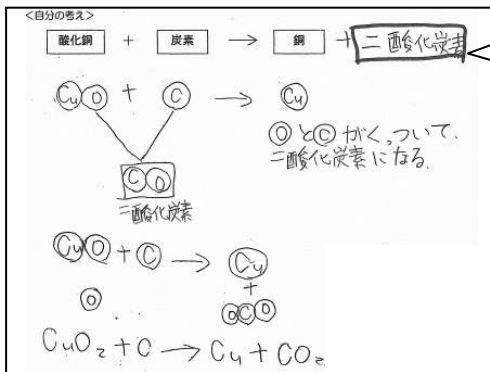 <自分の考え>
酸化銅 + 炭素 → 銅 + 二酸化炭素
Cu O + C → Cu
OとCがくっついて、
二酸化炭素になる。
C O
二酸化炭素
Cu O + C → Cu
+
O
O C O
CuO₂ + C → Cu + CO₂